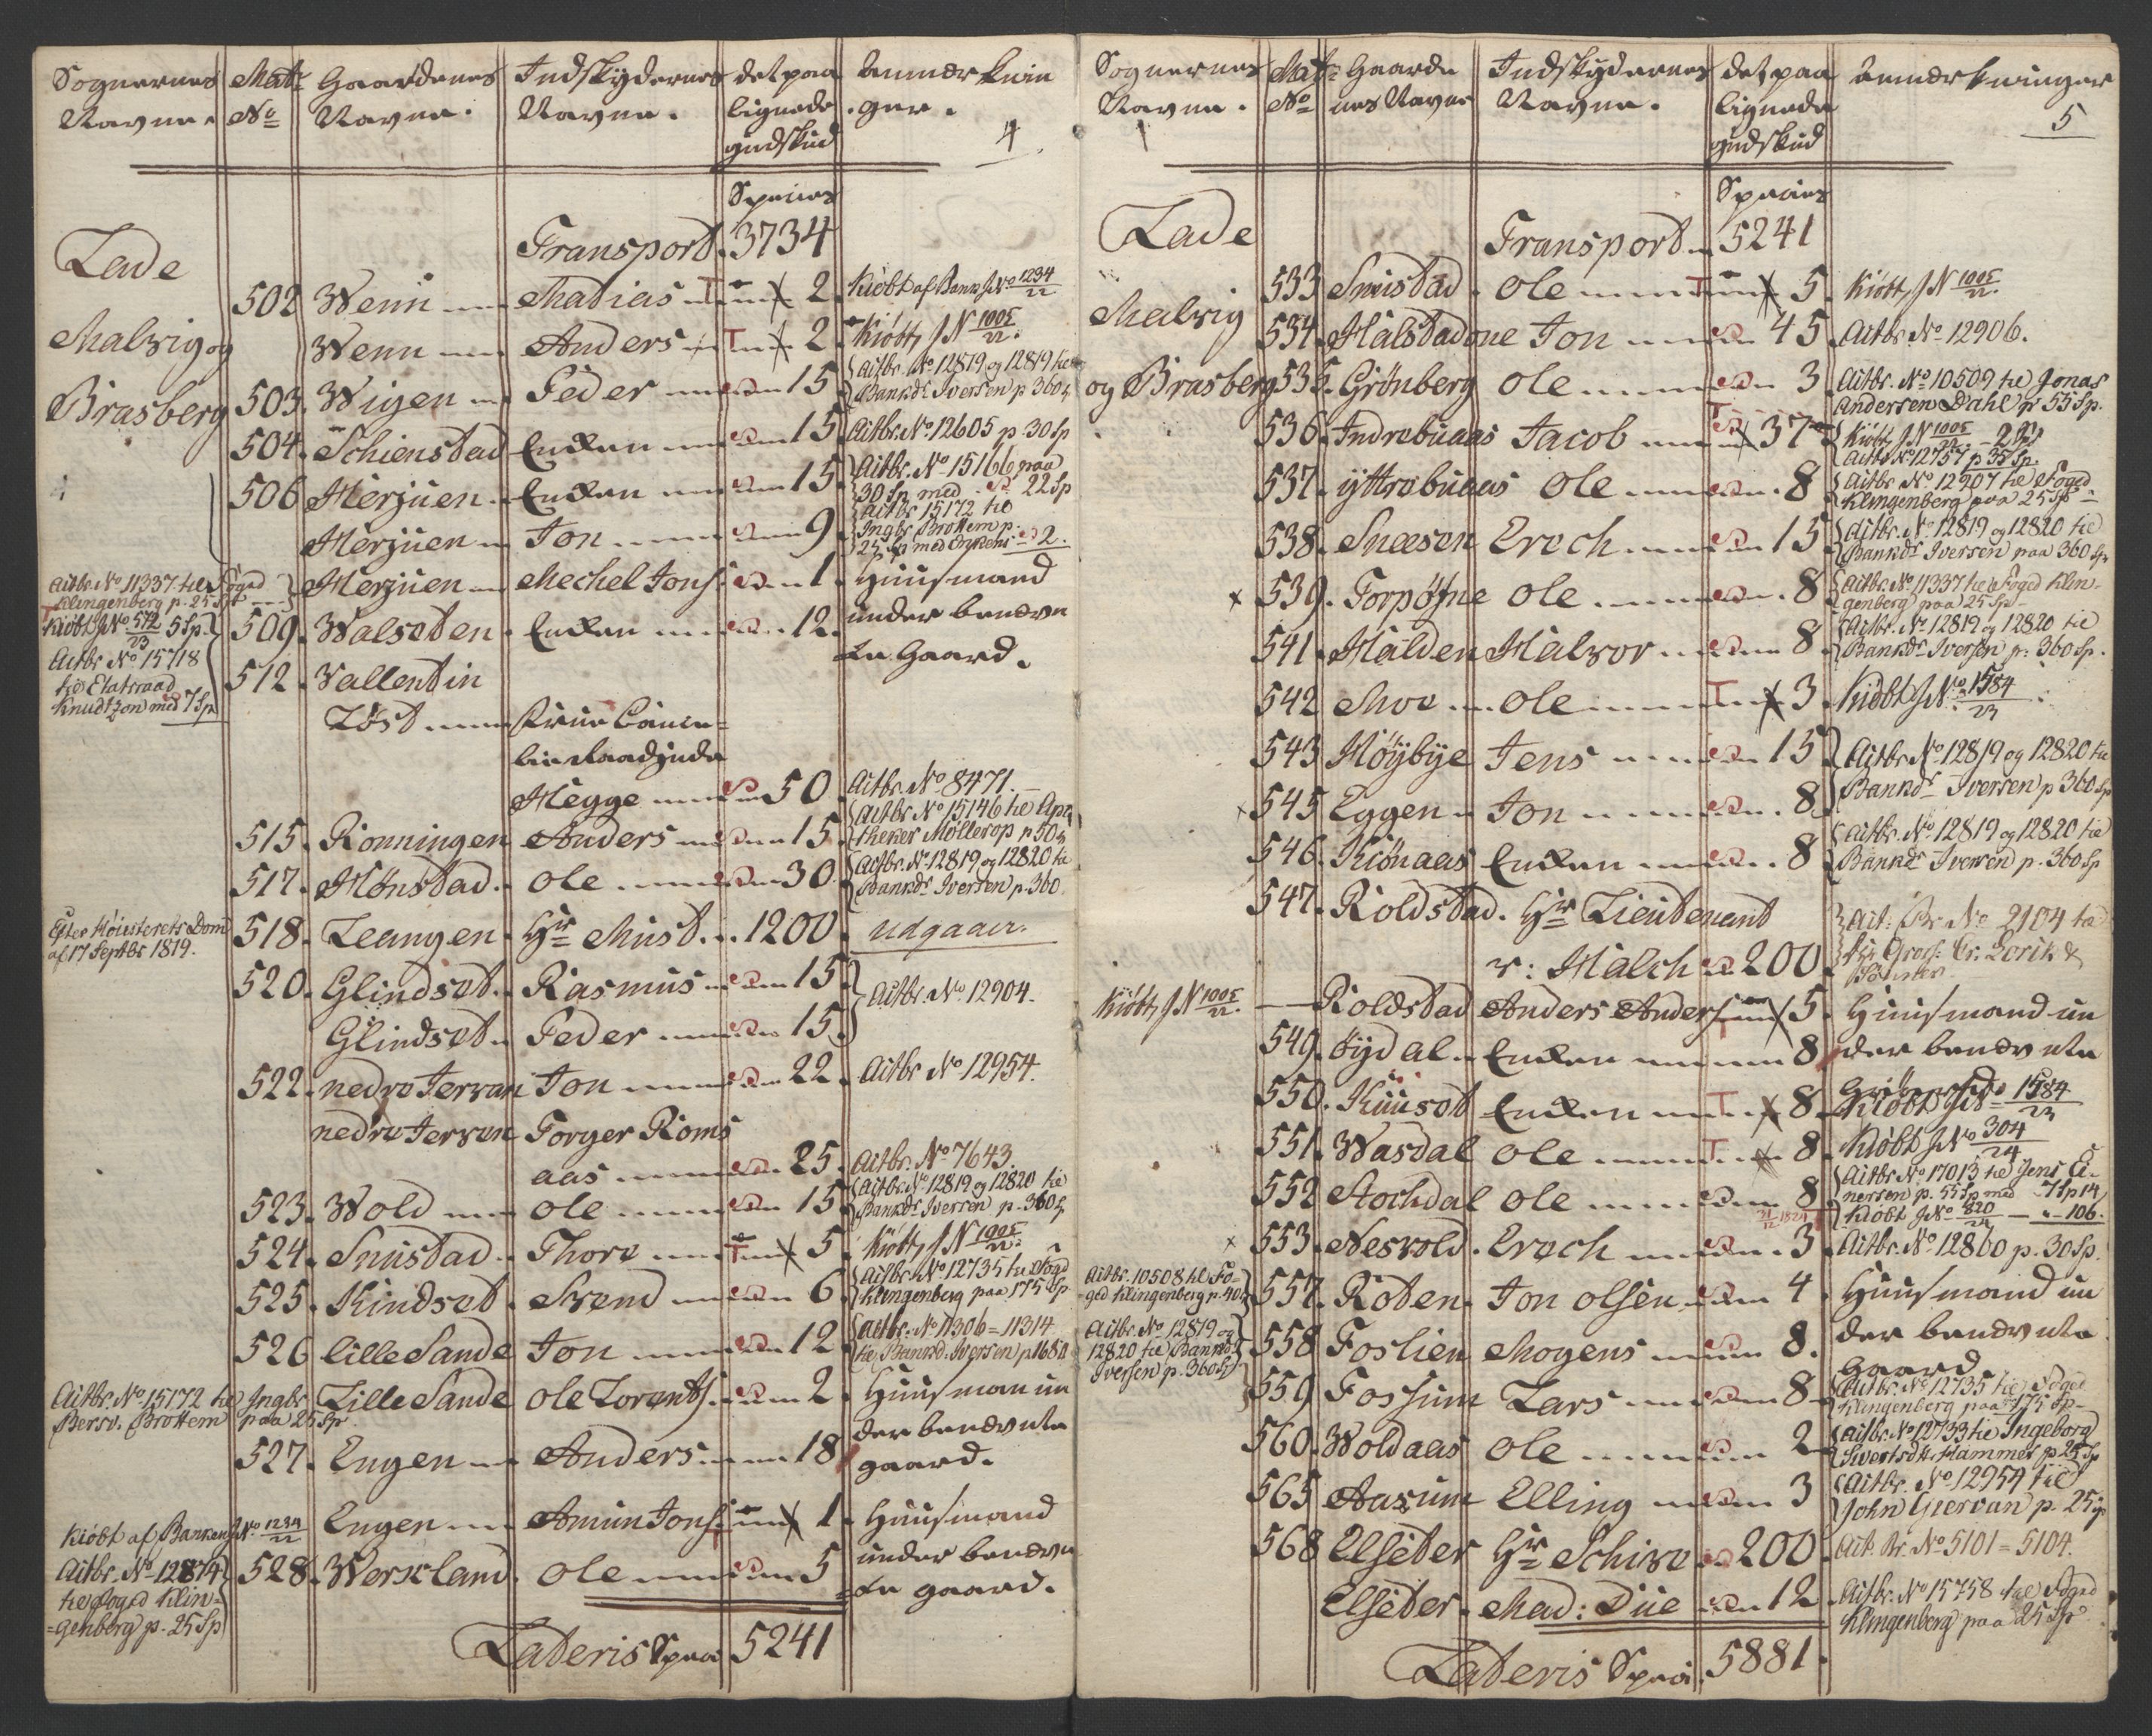 Sognernes Navne. Mat: No Gaardenes Navne. Indskydernes Navne. det paalignede gudskud anmærkninger. 4
Species
Lade Transport. 3734
502 Wenn Matias T 2 Kiøbt af Bank J No 1234/22
Malvig og Wenn Anders T 2 Kiøbt J N 1005/22.
503. Wigen Peder 15 Actbr. No 12819 og 12819 til Bankd: Iversen p 360
Brasberg 504. Schienstad Enken 15 Actbr. No 12605 p. 30 Sp
506 Herjuen Enken 15 Actbr. No 15166 paa 30 Sp med 22 Sp
Herjuen Jon 9 Actbr 15172 til Ingbr Brottem p. 25 Sp med 2.
Actbr. No 11337 til Foged Klingenberg p. 25 Sp Herjuen Mechel Jons: 1. Huusmand under benævnte Gaard.
Kiøbt J No 572/23 5 Sp. 509. Walseten Enken 12.
Actbr No 15718 til Etatsraad Knudtzon med 7 Sp 512. Vallentin
Lyst Frue Cancelliraadinde
Hegge 50. Actbr. No 8471.
515. Ronningen Anders 15. Actbr No 15146 til Apotheker Møllerop p 50
517. Hønstad. Ole 30. Actbr. No 12819 og 12820 til Bankd: Iversen p. 360
Efter Høiesterets Dom af 17 Septbr 1819. 518. Leangen Hr Must. 1200. udgaaer.
520. Glindset. Rasmus 15 Actbr. No 12904.
Glindset Peder 15.
522. nedre Jervan Jon 22. Actbr No 12954.
nedre Jervan Torger Roms
aas 25. Actbr. No 7643
523. Wold Ole 15. Actbr. No 12819 og 12820 til Bankd: Iversen p. 360 Sp
524. Snustad Thore T 5. Kiøbt J N 1005/22.
525. Kindset Svend 6. Actbr. No 12735 til Foged Klingenberg paa 175 Sp
526 lille Sande Jon 12. Actbr: No 11306 = 11314 til Bankd. Iversen p 1680
Actbr. No 15172 til Ingbr Bersv. Brottem paa 25 Sp Lille Sande Ole Lorents: 2. Huusman under benævnte gaard.
527. Engen Anders 18
Kiøbt af Banken J No. 1234/22 Engen Amun Jons: 1. Huusmand under benævnte gaard.
Actbr. No 12874 til Foged Klingenberg p. 25 Sp 528. Werseland. Ole 5
Lateris Speci 5241
Sognernes Navne. Mat: No Gaardenes Navne Indskydernes Navne. det paalignede gudskud anmærkninger 5
Species
Lade Transport 5241
533 Snustad Ole T 5. Kiøbt J N 1005/22.
Malvig 534. Halstadone Jon 45. Actbr. No 12906.
og Brasberg 535. Grønberg Ole 3. Actbr. No 10509 til Jonas Andersen Dahl p 55 Sp.
536. Indrebuaas Jacob T 37 Kiøbt J N 1005/22 - 2 Sp Actbr No 12757 p 35 Sp.
537. yttrebuaas Ole 8. Actbr. No 12907 til Foged Klingenberg paa 25 Sp
538. Sneesen Erech 15 Actbr. No 12819 og 12820 til Bankd: Iversen paa 360 Sp
x 539. Torpøsne Ole 8 Actbr. No 11337 til Foged Klingenberg paa 25 Sp
541. Halden Halvor 8. Actbr. No 12819 og 12820 til Bankd: Iversen p: 360 Sp.
542 Moe Ole T 3. Kiøbt J No 1584/23
543 Høybye Jens 15 Actbr. No 12819 og 12820 til Bankd: Iversen p 360 Sp
x 545 Eggen Jon 8
546. Kiønaas Enken 8. Actbr. No 12819 og 12820 til Bankd: Iversen p. 360 Sp
547. Roldstad. Hr Lieutenant
v: Halch 200. Act: Br No 2104
Kiøbt J N 1005/22. Roldstad Anders Anders: 5. Huusmand under benævnte
549. øydal Enken 8
550. Kuuset Enken T 8. Kiøbt J No 1584/23
551. Wasdal Ole T 8. Kiøbt J No 304/24
552 Stochdal Ole 8 Actbr. No 17013 til Jens Einersen p. 55 Sp med 7 Sp 14 Kiøbt J No 820/24 - " - 106.
x 553. Nesvold. Erech 3. Actbr. No 12860 p. 30 Sp.
Actbr. 10508 til Foged Klingenberg p. 40 557. Roten Jon Olsen 4. Huusmand under benævnte gaard
Actbr. No 12819 og 12820 til Bankd Iversen p. 360 Sp 558 Foslien Mogens 8.
559 Fossum Lars 8 Actbr. No 12735 til Foged Klingenberg paa 175 Sp
560. Woldaas Ole 2 Actbr. No 12733 til Ingeborg Sivertsdtr Hammer p. 25 Sp
565 Aasum Elling 3 Actbr. No 12954 til John Giervan p. 25 Sp
568 Elseter Hr Schive 200. Act. Br. No 5101 = 5104.
Elseter. Mad: Due 12. Actbr. No 15758 til Foged Klingenberg paa 25 Sp
Lateris Speci. 5881.